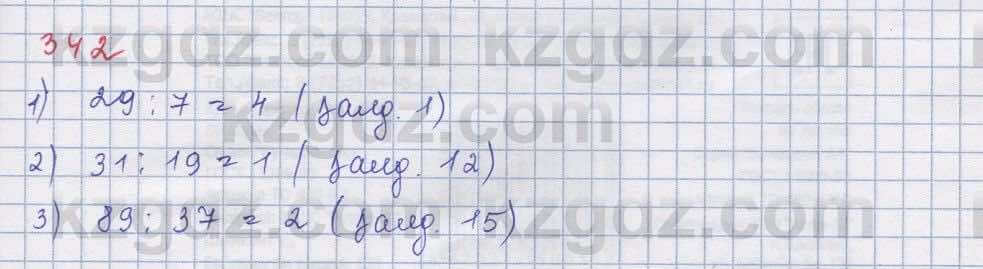 342
kzgdz.com kzgdz.com
1) 29 : 7 = 4 (қалд. 1)
kzgdz.com
2) 31 : 19 = 1 (қалд. 12)
3) 89 : 37 = 2 (қалд. 15)
kzgdz.com kzgdz.com